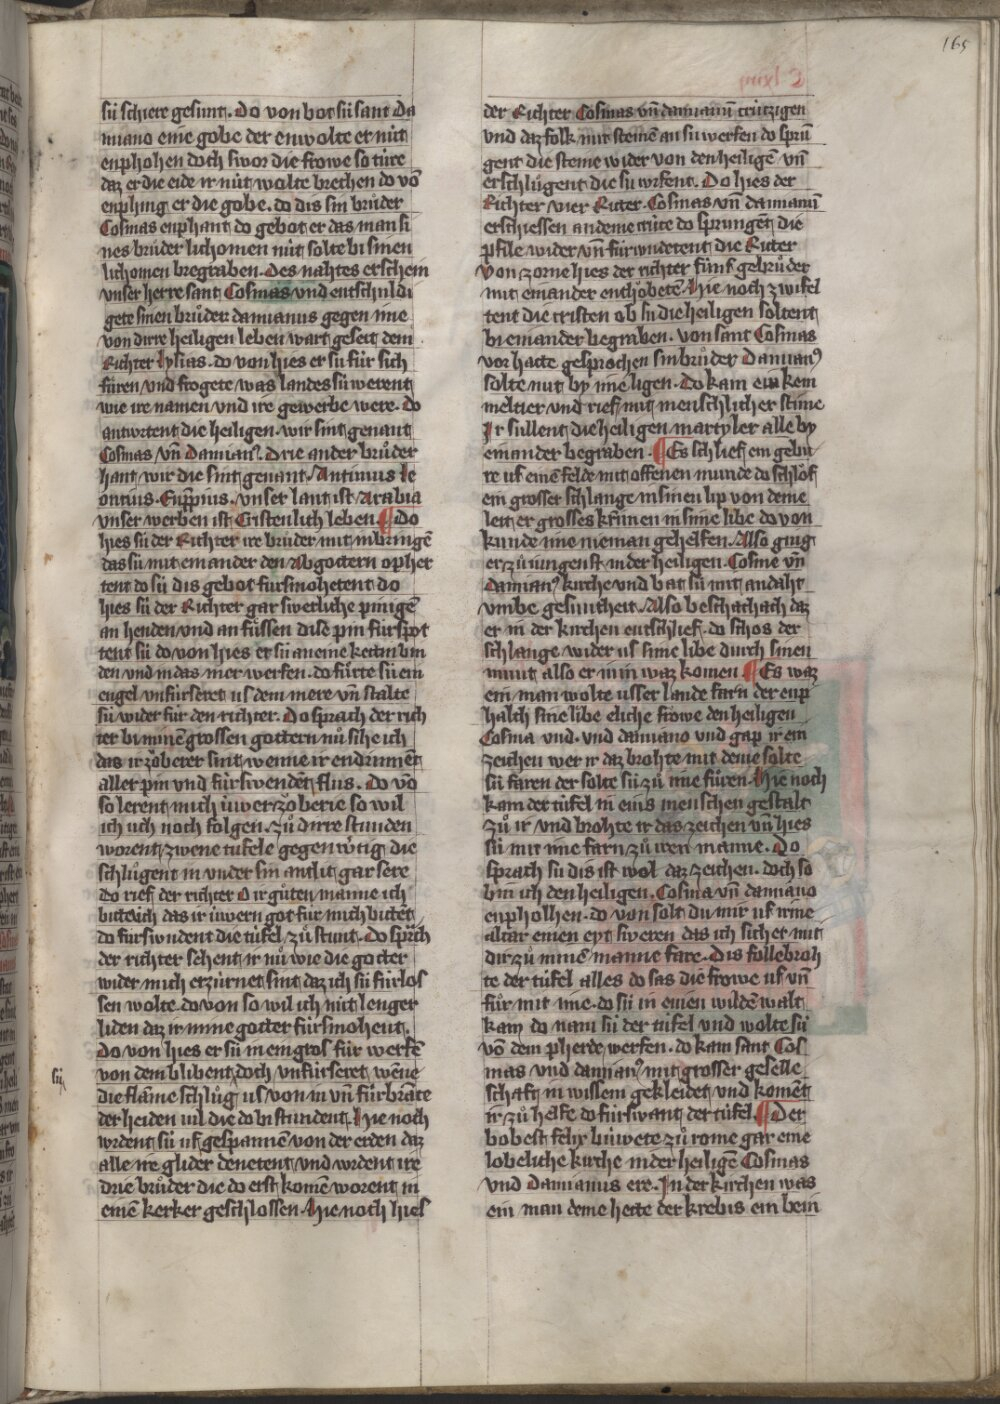 165
sü schiere gesunt. Do von bot sü sant Da
miano eine gobe der enwolte er nüt
enpfohen doch swor die frowe so türe
daz er die eide ir nüt wolte brechen do võ
enpfing er die gobe. do dis sin brůder
Cosmas enphant do gebot er das man si
nes brůder lichomen nüt solte bi sinen
lichomen begraben. Des nahtes erschein
unser herre sant Cosmas und entschuldi
gete sinen brůder damianus gegen ime
von dirre heiligen leben wart geseit dem
Richter Lysias. do von hies er sü für sich
fůren und frogete was landes sü werent
wie ire namen und ire gewerbe were. do
antwrtent die heiligen. wir sint genant
Cosmas uñ Damianꝰ. Drie ander brůder
hant wir die sint genant Antimus le
ontius. Euppius. unser lant ist Arabia
unser werben ist Cristenlich leben. ¶ Do
hies sü der Richter ire brůder mit in bringẽ
das sü mit einander den Abgottern opher
tent do sü dis gebot fürsmohetent do
hies sü der Richter gar swerliche pinigẽ
an henden und an fůssen dise pin fürspot
tent sü do von hies er sü an eine kettin bin
den und in das mer werfen. do fůrte sü ein
engel unfürseret us dem mere uñ stalte
sü wider für den richter. Do sprach der rich
ter bi minẽ grossen gottern nů sihe ich
das ir zöberer sint wenne ir endrinnẽt
aller pin und fürswendẽt flus. do võ
so lerent mich üwer zöberie so wil
ich üch noch folgen. Zů dirre stunden
worent zwene tüfele gegenwrtig die
schlůgent in under sin antlit gar sere
do rief der richter O ir gůten manne ich
bitte üch das ir üwern got für mich bittẽt
do fürswndent die tüfel zů stunt. Do sprach
der richter sehent ir nů wie die gotter
wider mich erzürnet sint daz ich sü fürlos
sen wolte do von so wil ich nüt lenger
liden daz ir mine gotter fürsmohent.
Do von hies er sü in ein gros für werfẽ
von dem blibent doch unfürseret wẽne
sü
die flãme schlůg us von in uñ fürbrãte
der heiden vil die do bi stundent. Hie noch
wrdent sü uf gespannẽ von der erden daz
alle ire glider denetent und wrdent ire
drie brůder die do erst komẽ worent in
einẽ kerker geschlossen. Hie noch hies
C lxiiij
der Richter Cosmas uñ damianũ crützigen
und daz folk mit steinẽ an sü werfen do sprũ
gent die steine wider von den heiligẽ uñ
erschlůgent die sü wrfent. Do hies der
Richter vier Ritter Cosmas uñ damianũ
erschiessen an deme crütze do sprungẽt die
pfile wider uñ fürwndetent die Ritter
von zorne hies der richter fünf gebrůder
mit einander enthobetẽ. Hie noch zwifel
tent die cristen ob sü die heiligen soltent
bi einander begraben. von sant Cosmas
vor hatte gesprochen sin brůder Damianꝰ
solte nüt by ime ligen. Do kam ein kem
meltier und rief mit menschlicher stime
Ir süllent die heiligen martyler alle by
einander begraben. ¶ Es schlief ein gebu
re uf einẽ felde mit offenen munde do schlof
ein grosser schlange in sinen lip von deme
leit er grosses krimen in sime libe do von
kunde ime nieman gehelfen. Also ging
er zů iungenst in der heiligen Cosme uñ
Damianꝰ kirche und bat sü mit andaht
umbe gesuntheit. Also beschach ach daz
er in der kirchen entschlief. do schos der
schlange wider us sime libe durch sinen
munt also er in in waz komen ¶ Es waz
ein man wolte usser lande farn der enp
halch sine libe eliche frowe den heiligen
Cosma und. und damiano und gap ir ein
zeichen wer ir daz brohte mit deme solte
sü faren der solte sü zů ime fůren. Hie noch
kam der tüfel in eins menschen gestalt
zů ir und brohte ir das zeichen uñ hies
sü mit ime farn zů iren manne. Do
sprach sü dis ist wol daz zeichen. doch so
bin ich den heiligen Cosma uñ damiano
enpholhen. do von solt du mir uf irme
altar einen eyt sweren das ich sicher mit
dir zů minẽ manne fare. Dis follebroh
te der tüfel alles do sas die frowe uf uñ
fůr mit ime. do sü in einen wildẽ walt
kam do nam sü der tüfel und wolte sü
võ dem pherde werfen. do kam sant Cos
mas und damianꝰ mit grosser geselle
schaft in wissem gekleidet und komẽt
ir zů helfe do fürswant der tüfel. ¶ Der
bobest felix büwete zů rome gar eine
lobeliche kirche in der heiligẽ Cosmas
und Damianus ere. In der kirchen was
ein man deme hette der krebis ein bein